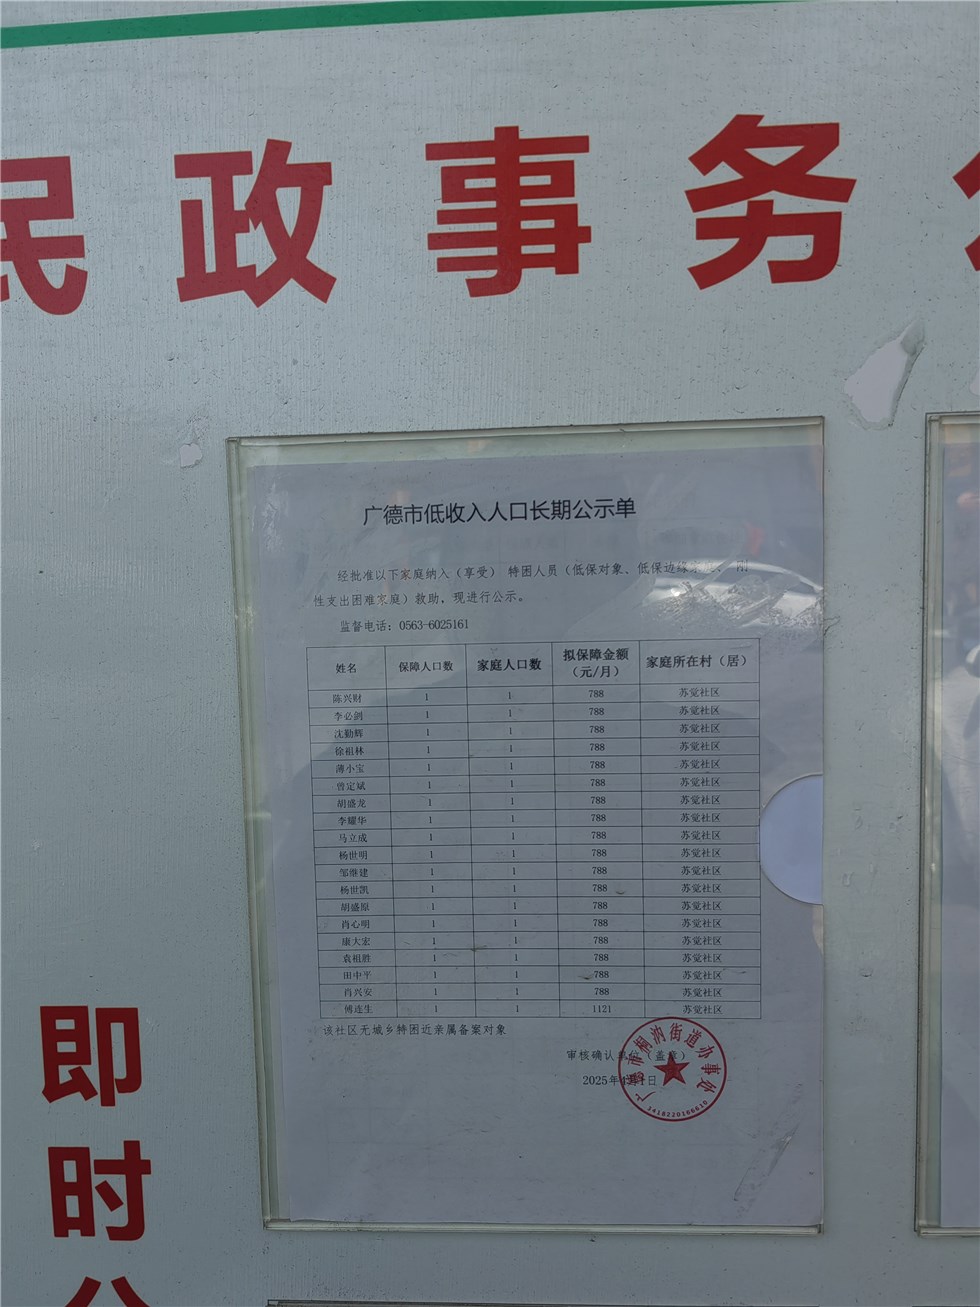 民政事务
广德市低收入人口长期公示单
经批准以下家庭纳入（享受） 特困人员（低保对象、低保边缘 刚
性支出困难家庭）救助，现进行公示。
监督电话：0563-6025161
姓名 保障人口数 家庭人口数 拟保障金额（元/月） 家庭所在村（居）
陈兴财 1 1 788 苏觉社区
李必剑 1 1 788 苏觉社区
沈勤辉 1 1 788 苏觉社区
徐祖林 1 1 788 苏觉社区
薄小宝 1 1 788 苏觉社区
曾定斌 1 1 788 苏觉社区
胡盛龙 1 1 788 苏觉社区
李耀华 1 1 788 苏觉社区
马立成 1 1 788 苏觉社区
杨世明 1 1 788 苏觉社区
邹继建 1 1 788 苏觉社区
杨世凯 1 1 788 苏觉社区
胡盛原 1 1 788 苏觉社区
肖心明 1 1 788 苏觉社区
康大宏 1 1 788 苏觉社区
袁祖胜 1 1 788 苏觉社区
田中平 1 1 788 苏觉社区
肖兴安 1 1 788 苏觉社区
傅连生 1 1 1121 苏觉社区
该社区无城乡特困近亲属备案对象
审核确认单位（盖章）
2025年 月 日
广德市桐汭街道办事处
即时公